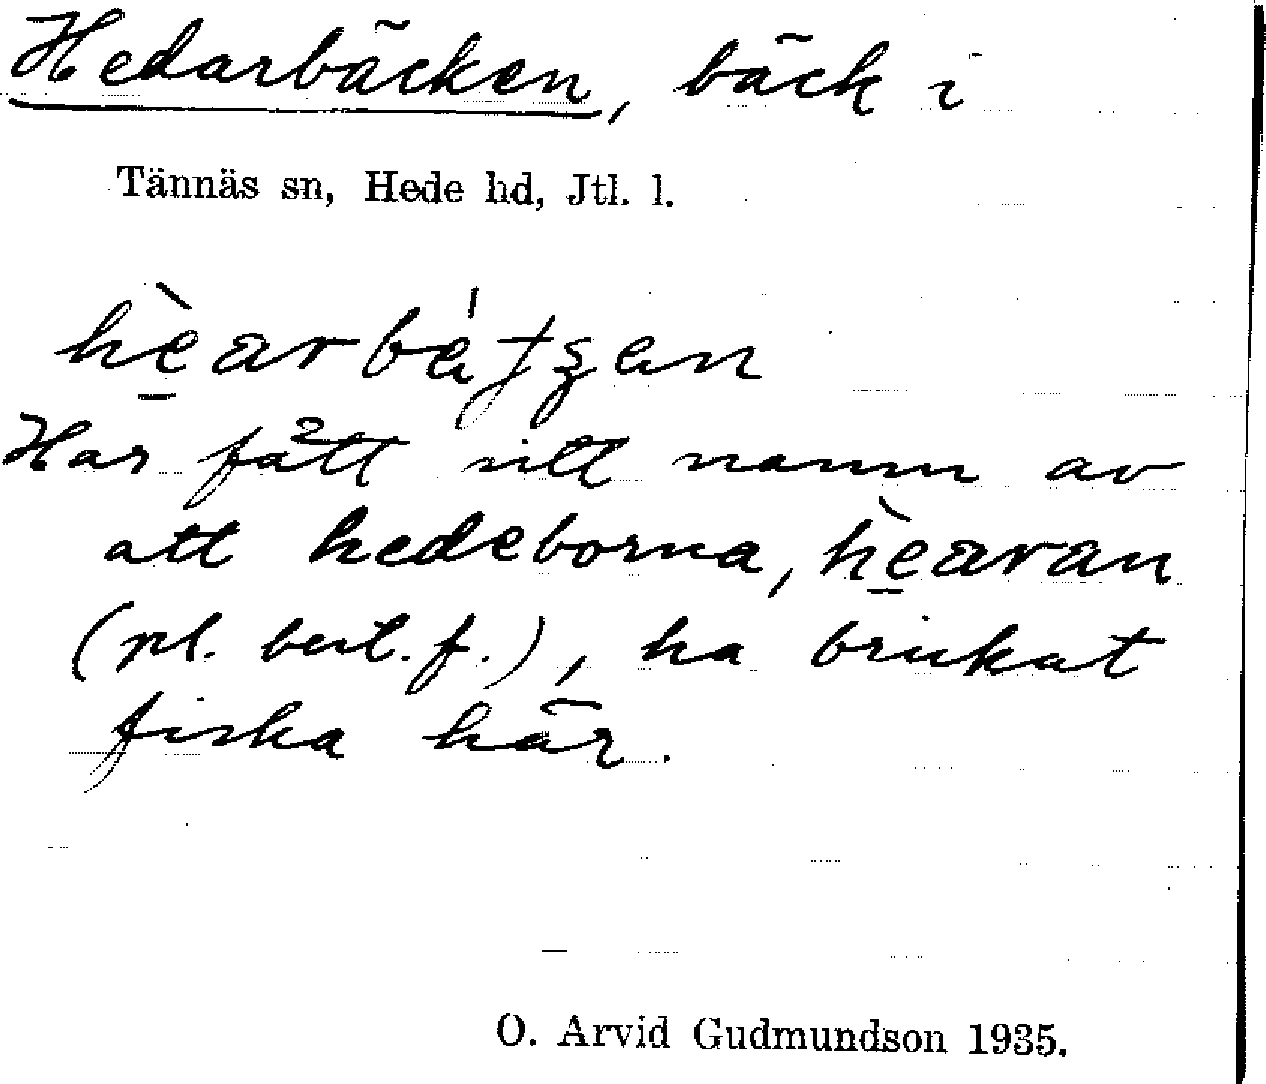 Hedarbäcken, bäck i
Tännäs sn, Hede hd, Jtl. l.
Har fått sitt namn av
att hedeborna, hèaran
(pl. best. f.), ha brukat
fiska här.
O. Arvid Gudmundson 1935.